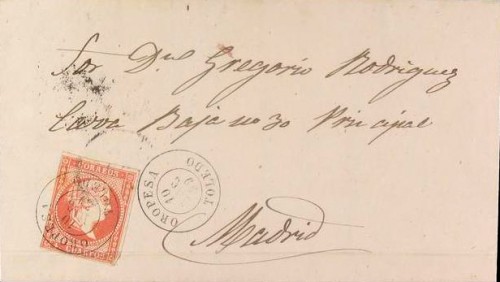 Sor Dn Gregorio Rodriguez
Cava Baja no 30 Principal
Madrid
OROPESA
TOLEDO
CORREOS
OROPESA